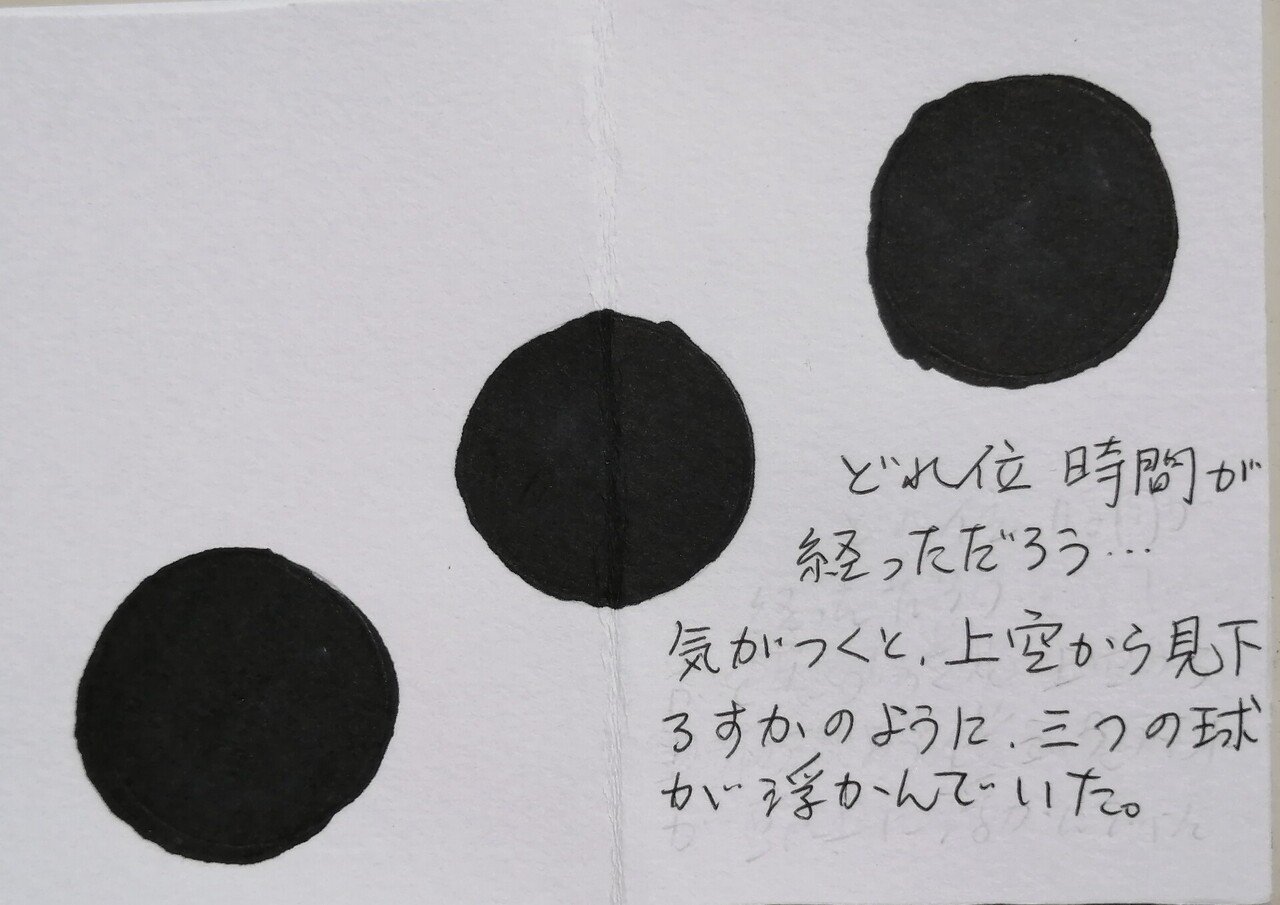 どれ位 時間が
経っただろう…
気がつくと、上空から見下
ろすかのように、三つの球
が浮かんでいた。